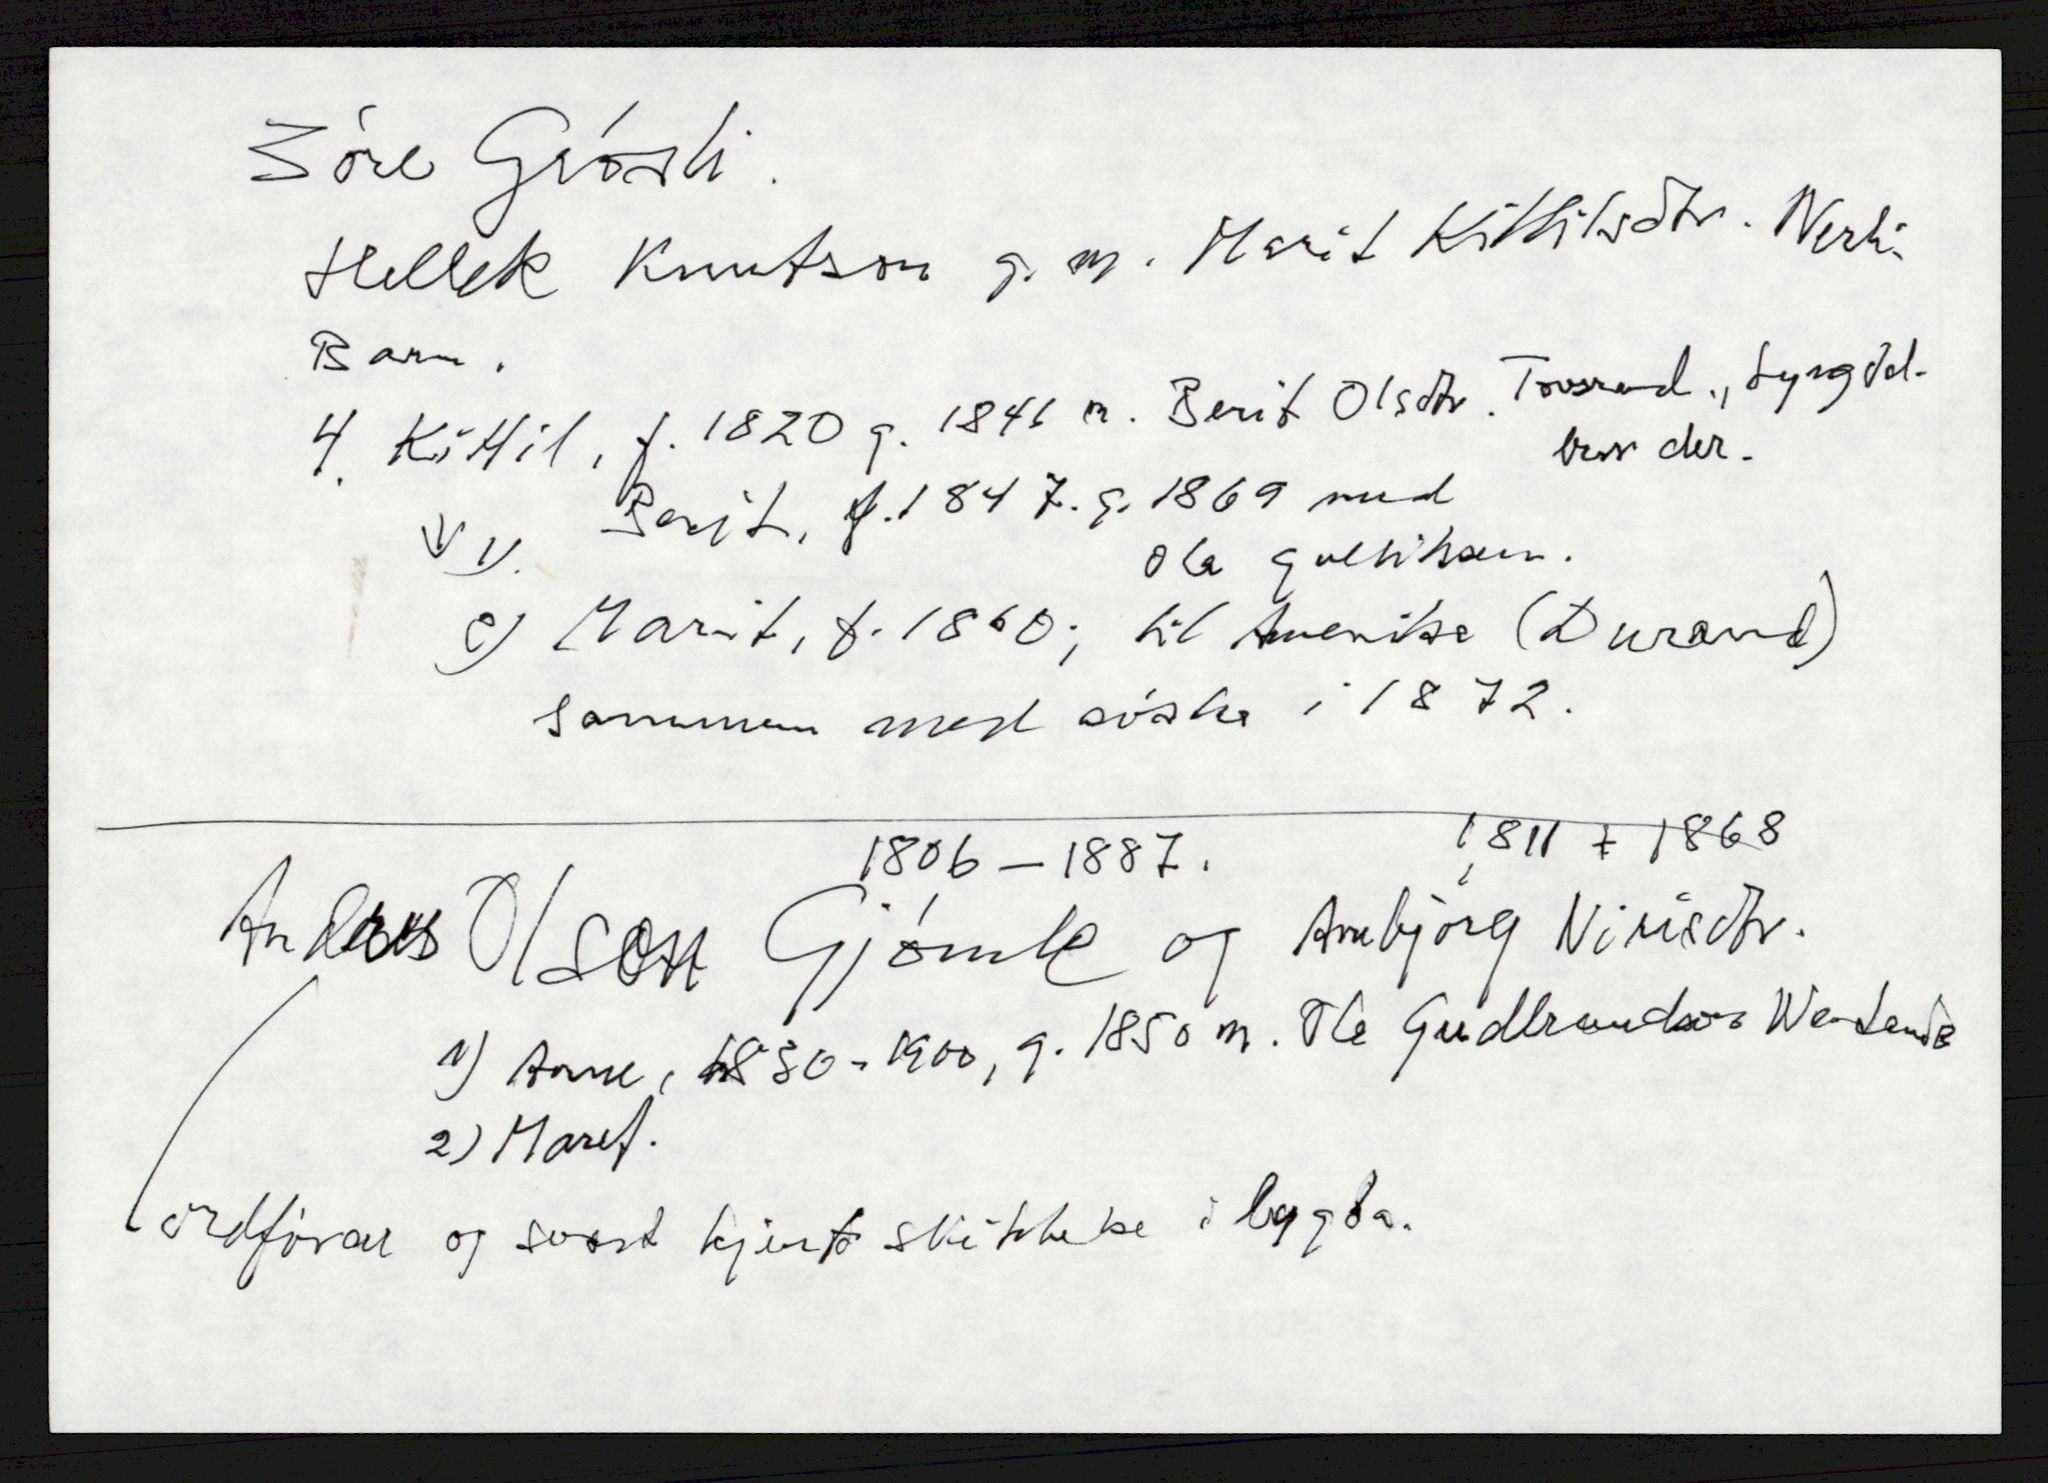 Söre Grösli.
Hellek Knutson g. m. Marit Kittilsdtr. Nerli.
Barn.
4. Kittil, f. 1820 g. 1846 m. Berit Olsdtr. Tovsrud., Lyngdal.
bur der.
1). Berit, f. 1847. g. 1869 med
Ola Gulliksen.
c) Marit, f. 1860; til Amerika (Durand)
sammen med söske i 1872.
1806 – 1887. 1811 + 1868
Anders Olson Gjömle og Annbjörg Nirisdtr.
1) Anne, 1830 - 1900, g. 1850 m. Ole Gudbrandson
2) Maret.
ordförar og svært kjent i bygda.